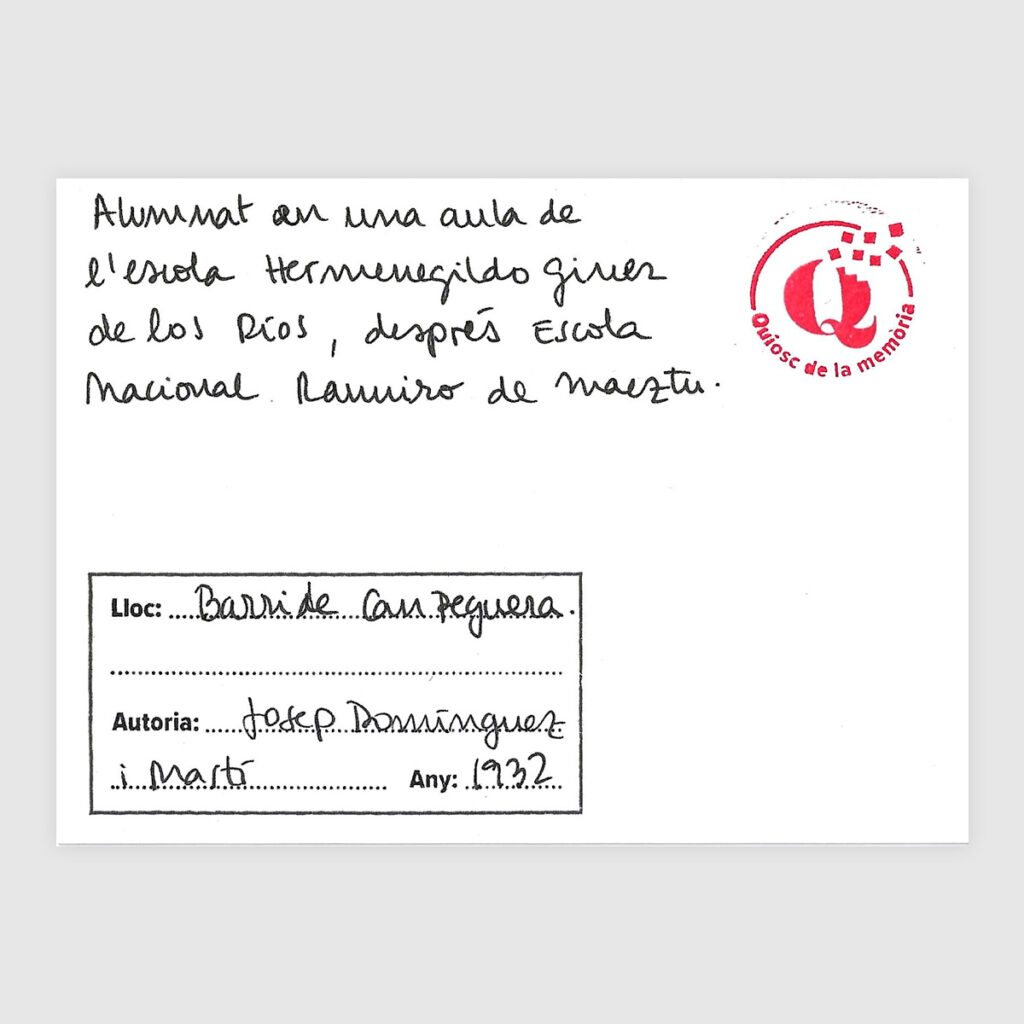 Alumnat en una aula de
l'escola Hermenegildo Giner
de los Ríos, després Escola
Nacional Ramiro de Maeztu.
Quiosc de la memòria
Lloc: Barri de Can Peguera.
Autoria: Josep Domínguez
i Martí Any: 1932